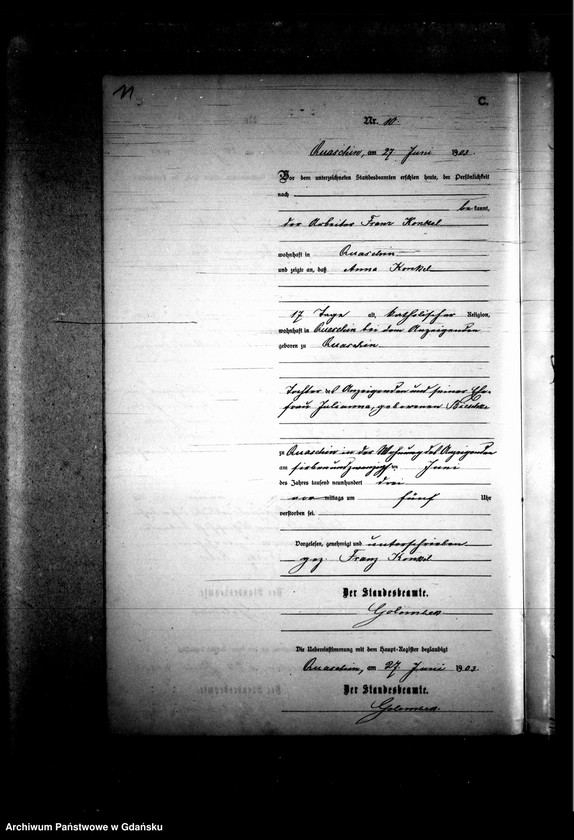 11
C.
Nr. 10.
Quaschin, am 27 Juni 1903.
Vor dem unterzeichneten Standesbeamten erschien heute, der Persönlichkeit
nach
bekannt,
der Arbeiter Franz Konkel
wohnhaft in Quaschin
und zeigte an, daß Anna Konkel
17 Tage alt, katholischer Religion,
wohnhaft in Quaschin bei dem Anzeigenden
geboren zu Quaschin
Tochter des Anzeigenden und seiner Ehe-
frau Julianna, geborenen
zu Quaschin in der Wohnung des Anzeigenden
am siebenundzwanzigsten Juni
des Jahres tausend neunhundert drei
vor mittags um fünf Uhr
verstorben sei.
Vorgelesen, genehmigt und unterschrieben
gez. Franz Konkel
Der Standesbeamte.
Golombek
Die Uebereinstimmung mit dem Haupt-Register beglaubigt
Quaschin, am 27. Juni 1903.
Der Standesbeamte.
Golombek.
Archiwum Państwowe w Gdańsku